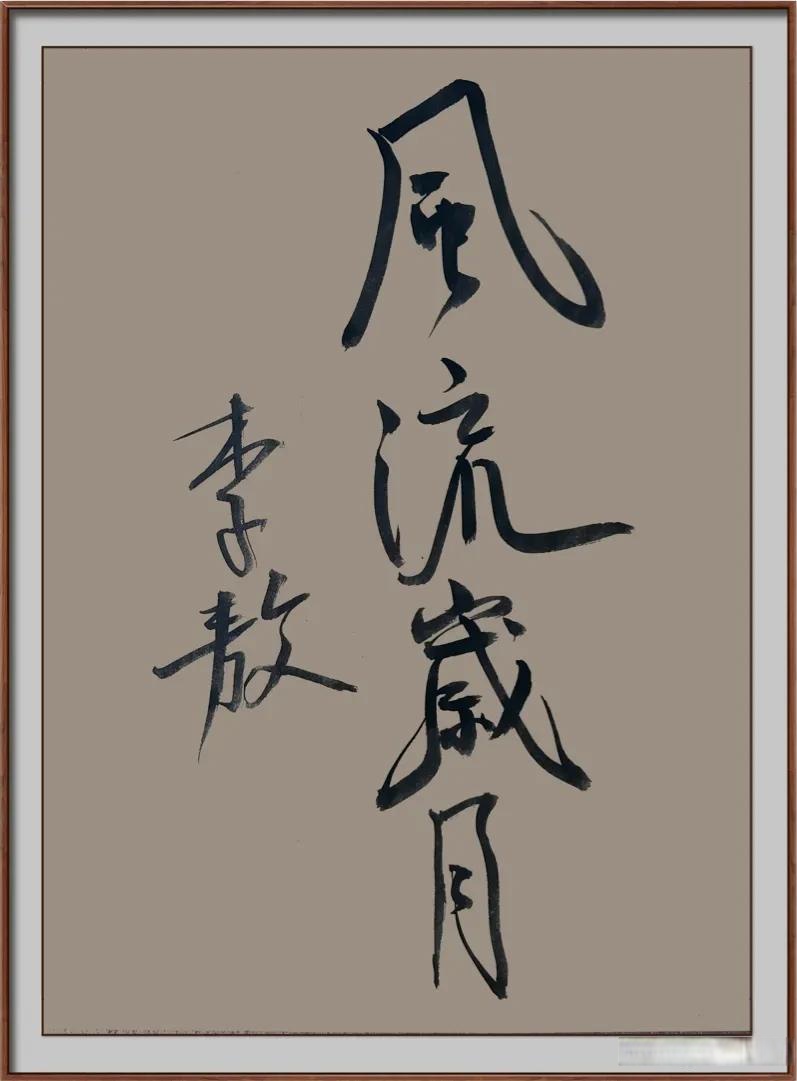 風流歲月
李敖